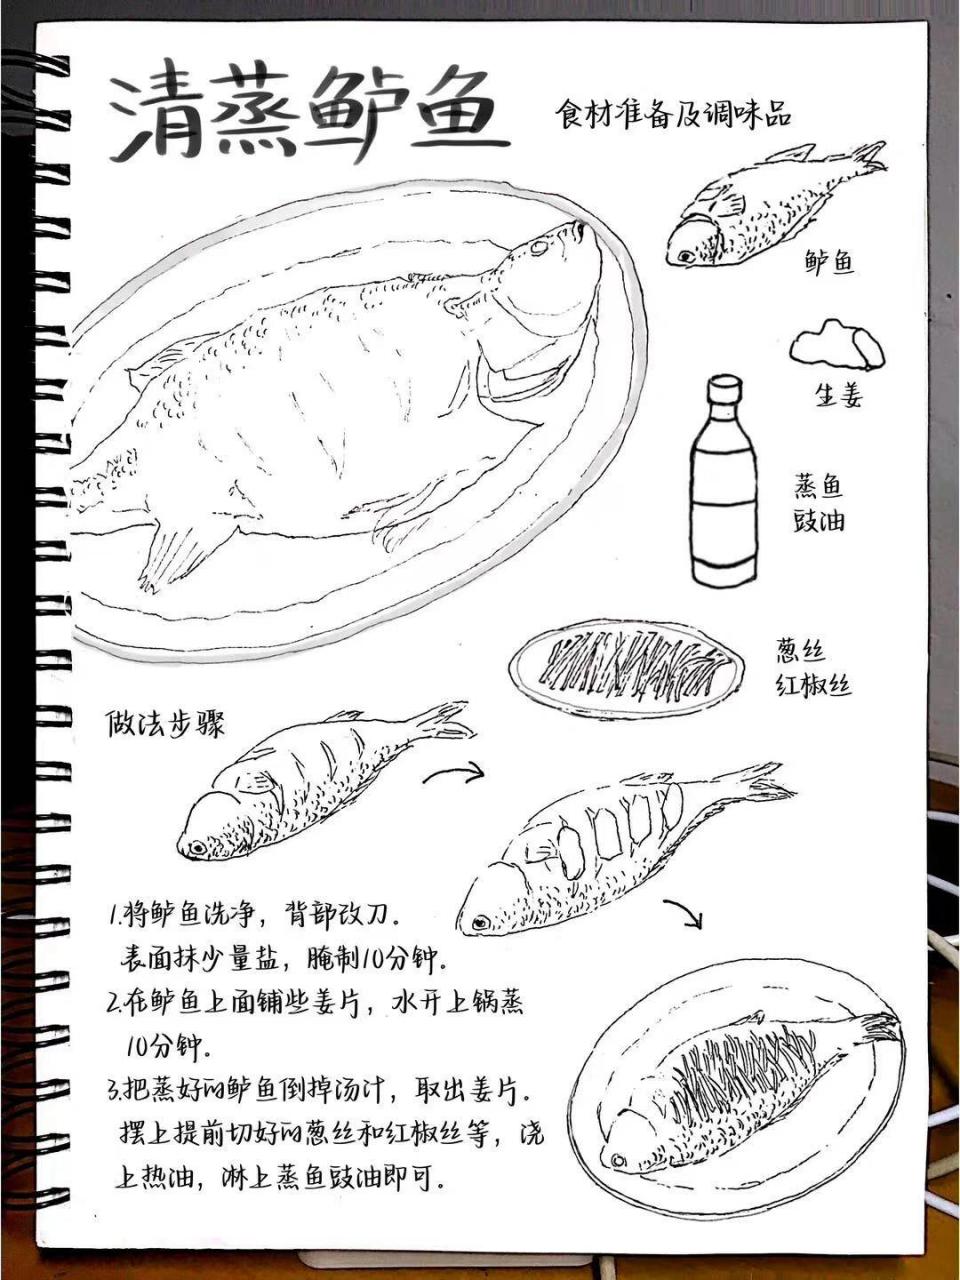 清蒸鲈鱼
食材准备及调味品
鲈鱼
生姜
蒸鱼
豉油
葱丝
红椒丝
做法步骤
1.将鲈鱼洗净，背部改刀.
表面抹少量盐，腌制10分钟.
2.在鲈鱼上面铺些姜片，水开上锅蒸
10分钟.
3.把蒸好的鲈鱼倒掉汤汁，取出姜片.
摆上提前切好的葱丝和红椒丝等，浇
上热油，淋上蒸鱼豉油即可.